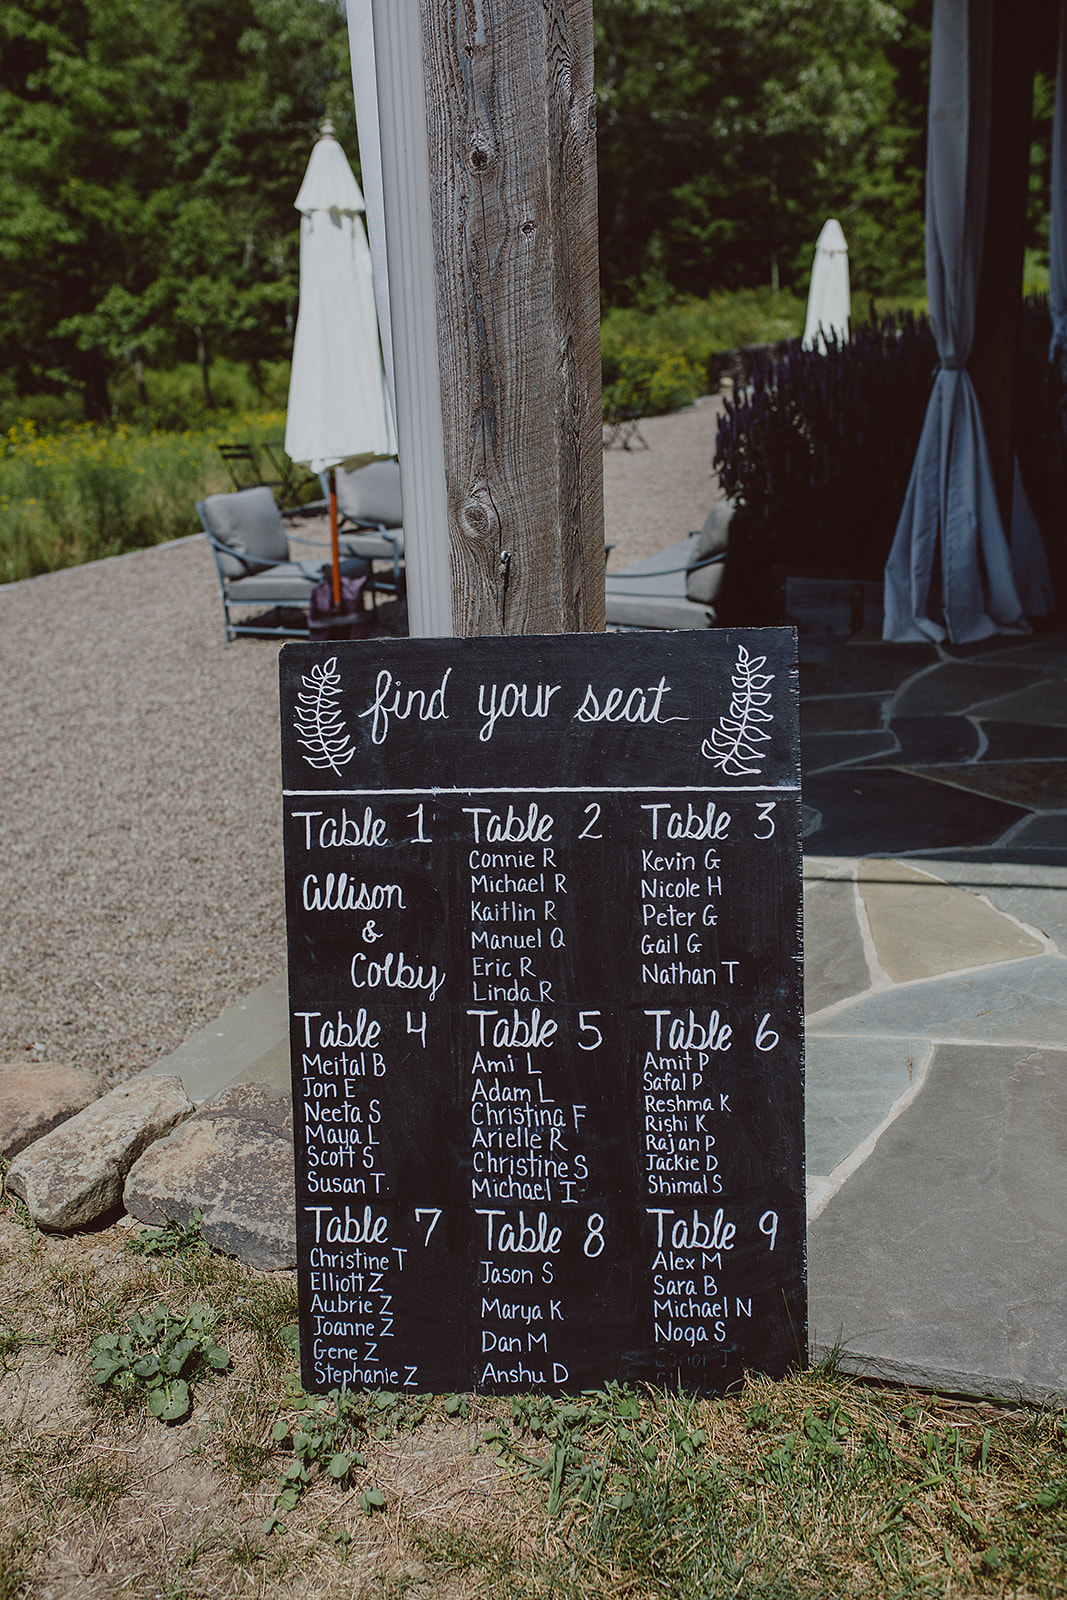 find your seat
Table 1
Allison
&
Colby
Table 2
Connie R
Michael R
Kaitlin R
Manuel Q
Eric R
Linda R
Table 3
Kevin G
Nicole H
Peter G
Gail G
Nathan T
Table 4
Meital B
Jon E
Neeta S
Maya L
Scott S
Susan T
Table 5
Ami L
Adam L
Christina F
Arielle R
Christine S
Michael I
Table 6
Amit P
Safal P
Reshma K
Rishi K
Rajan P
Jackie D
Shimal S
Table 7
Christine T
Elliott Z
Aubrie Z
Joanne Z
Gene Z
Stephanie Z
Table 8
Jason S
Marya K
Dan M
Anshu D
Table 9
Alex M
Sara B
Michael N
Noga S
Conor J